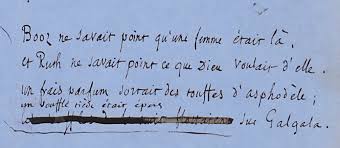 Booz ne savait point qu'une femme était là,
et Ruth ne savait point ce que Dieu voulait d'elle.
un frais parfum sortait des touffes d'asphodèle;
un souffle tiède était épars
sur Galgala.